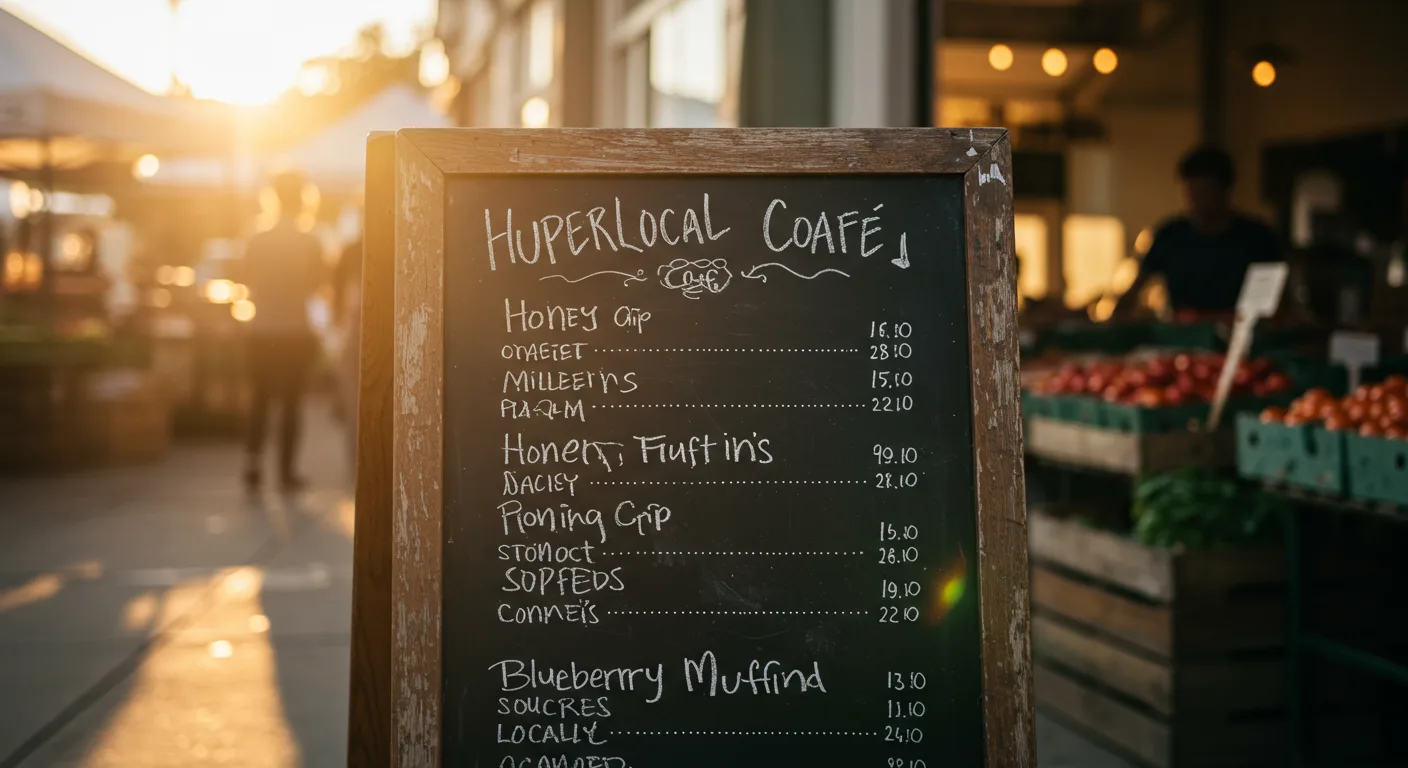 HUPERLOCAL COAFÉ
Cafe
HONEY GIP 16.10
OTAETET 2810
MILLEETNS 15.10
2210
HONERT, FIUFTIN'S 99.10
DACIEY 28.10
PIONING GIP 15.10
STOMOCT 28.10
SOPFEDS 19.10
CONMEI'S 22.10
BLUEBERRY MUFFIND 13.10
SOUCRES 11.10
LOCALLY 24.10